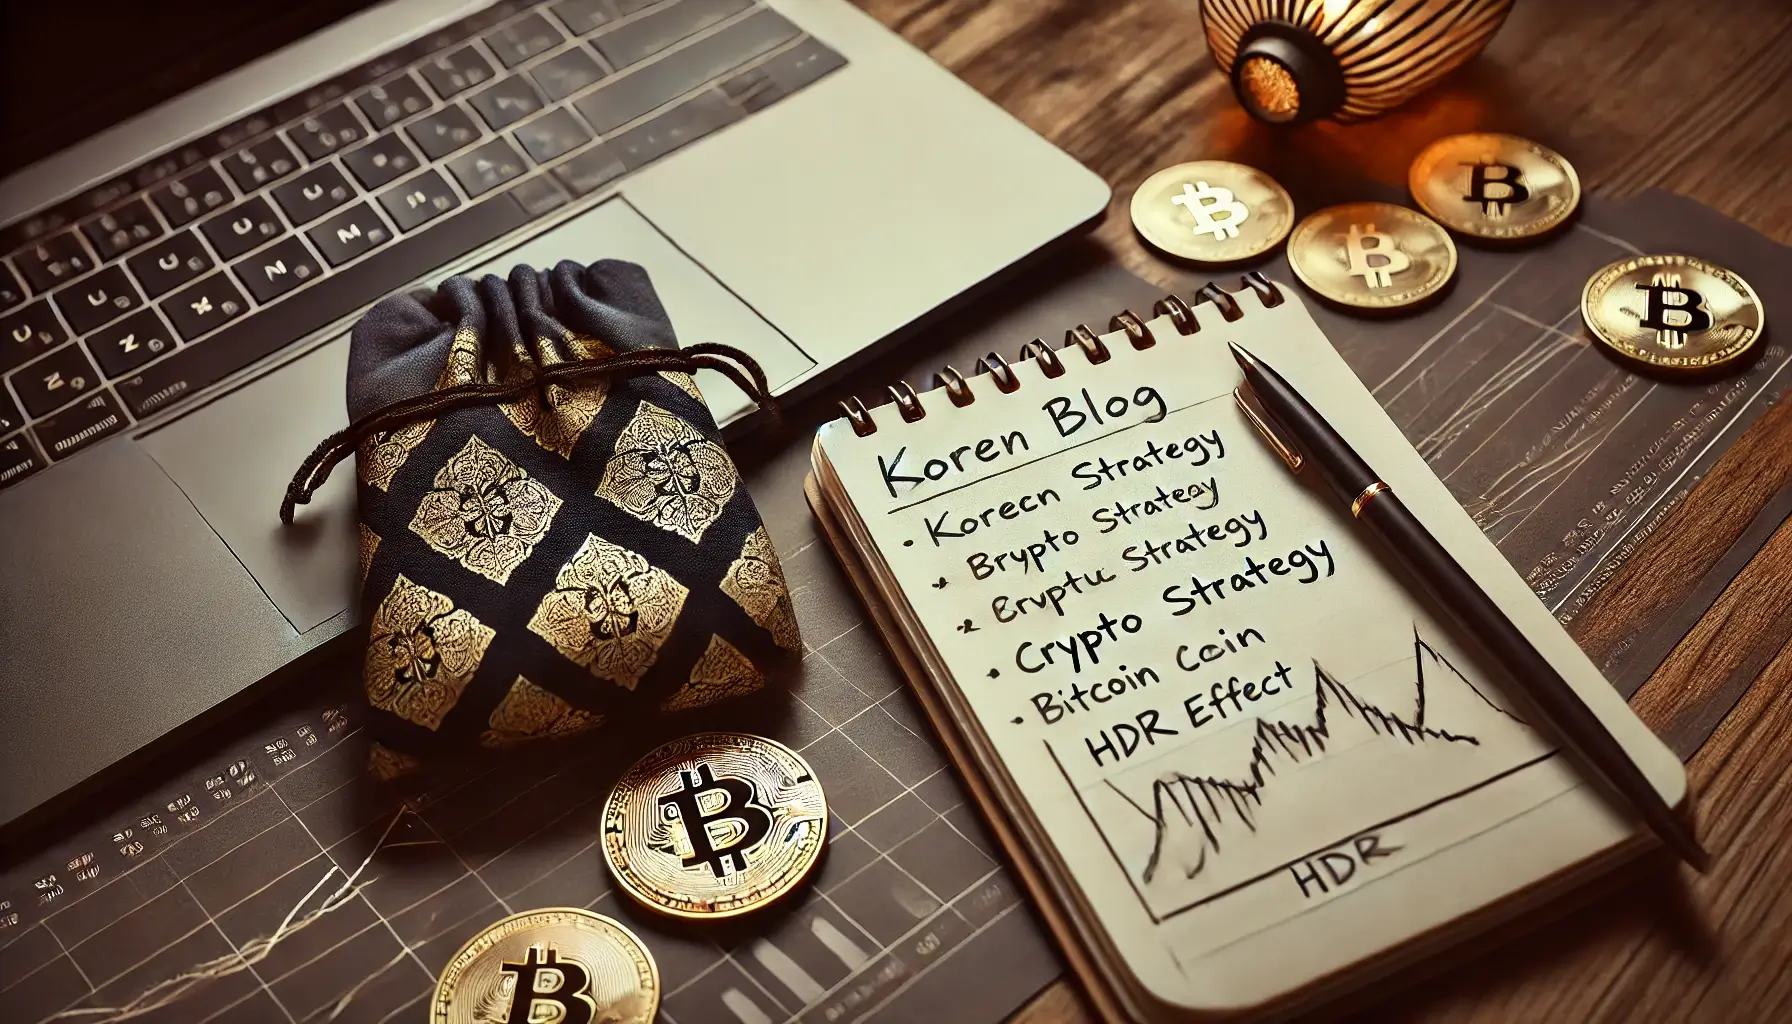 Koren Blog
Korecn Strategy
Brypto Strategy
Brvptu Strategy
Crypto Strategy
Bitcoin Coin
HDR Effect
HDR